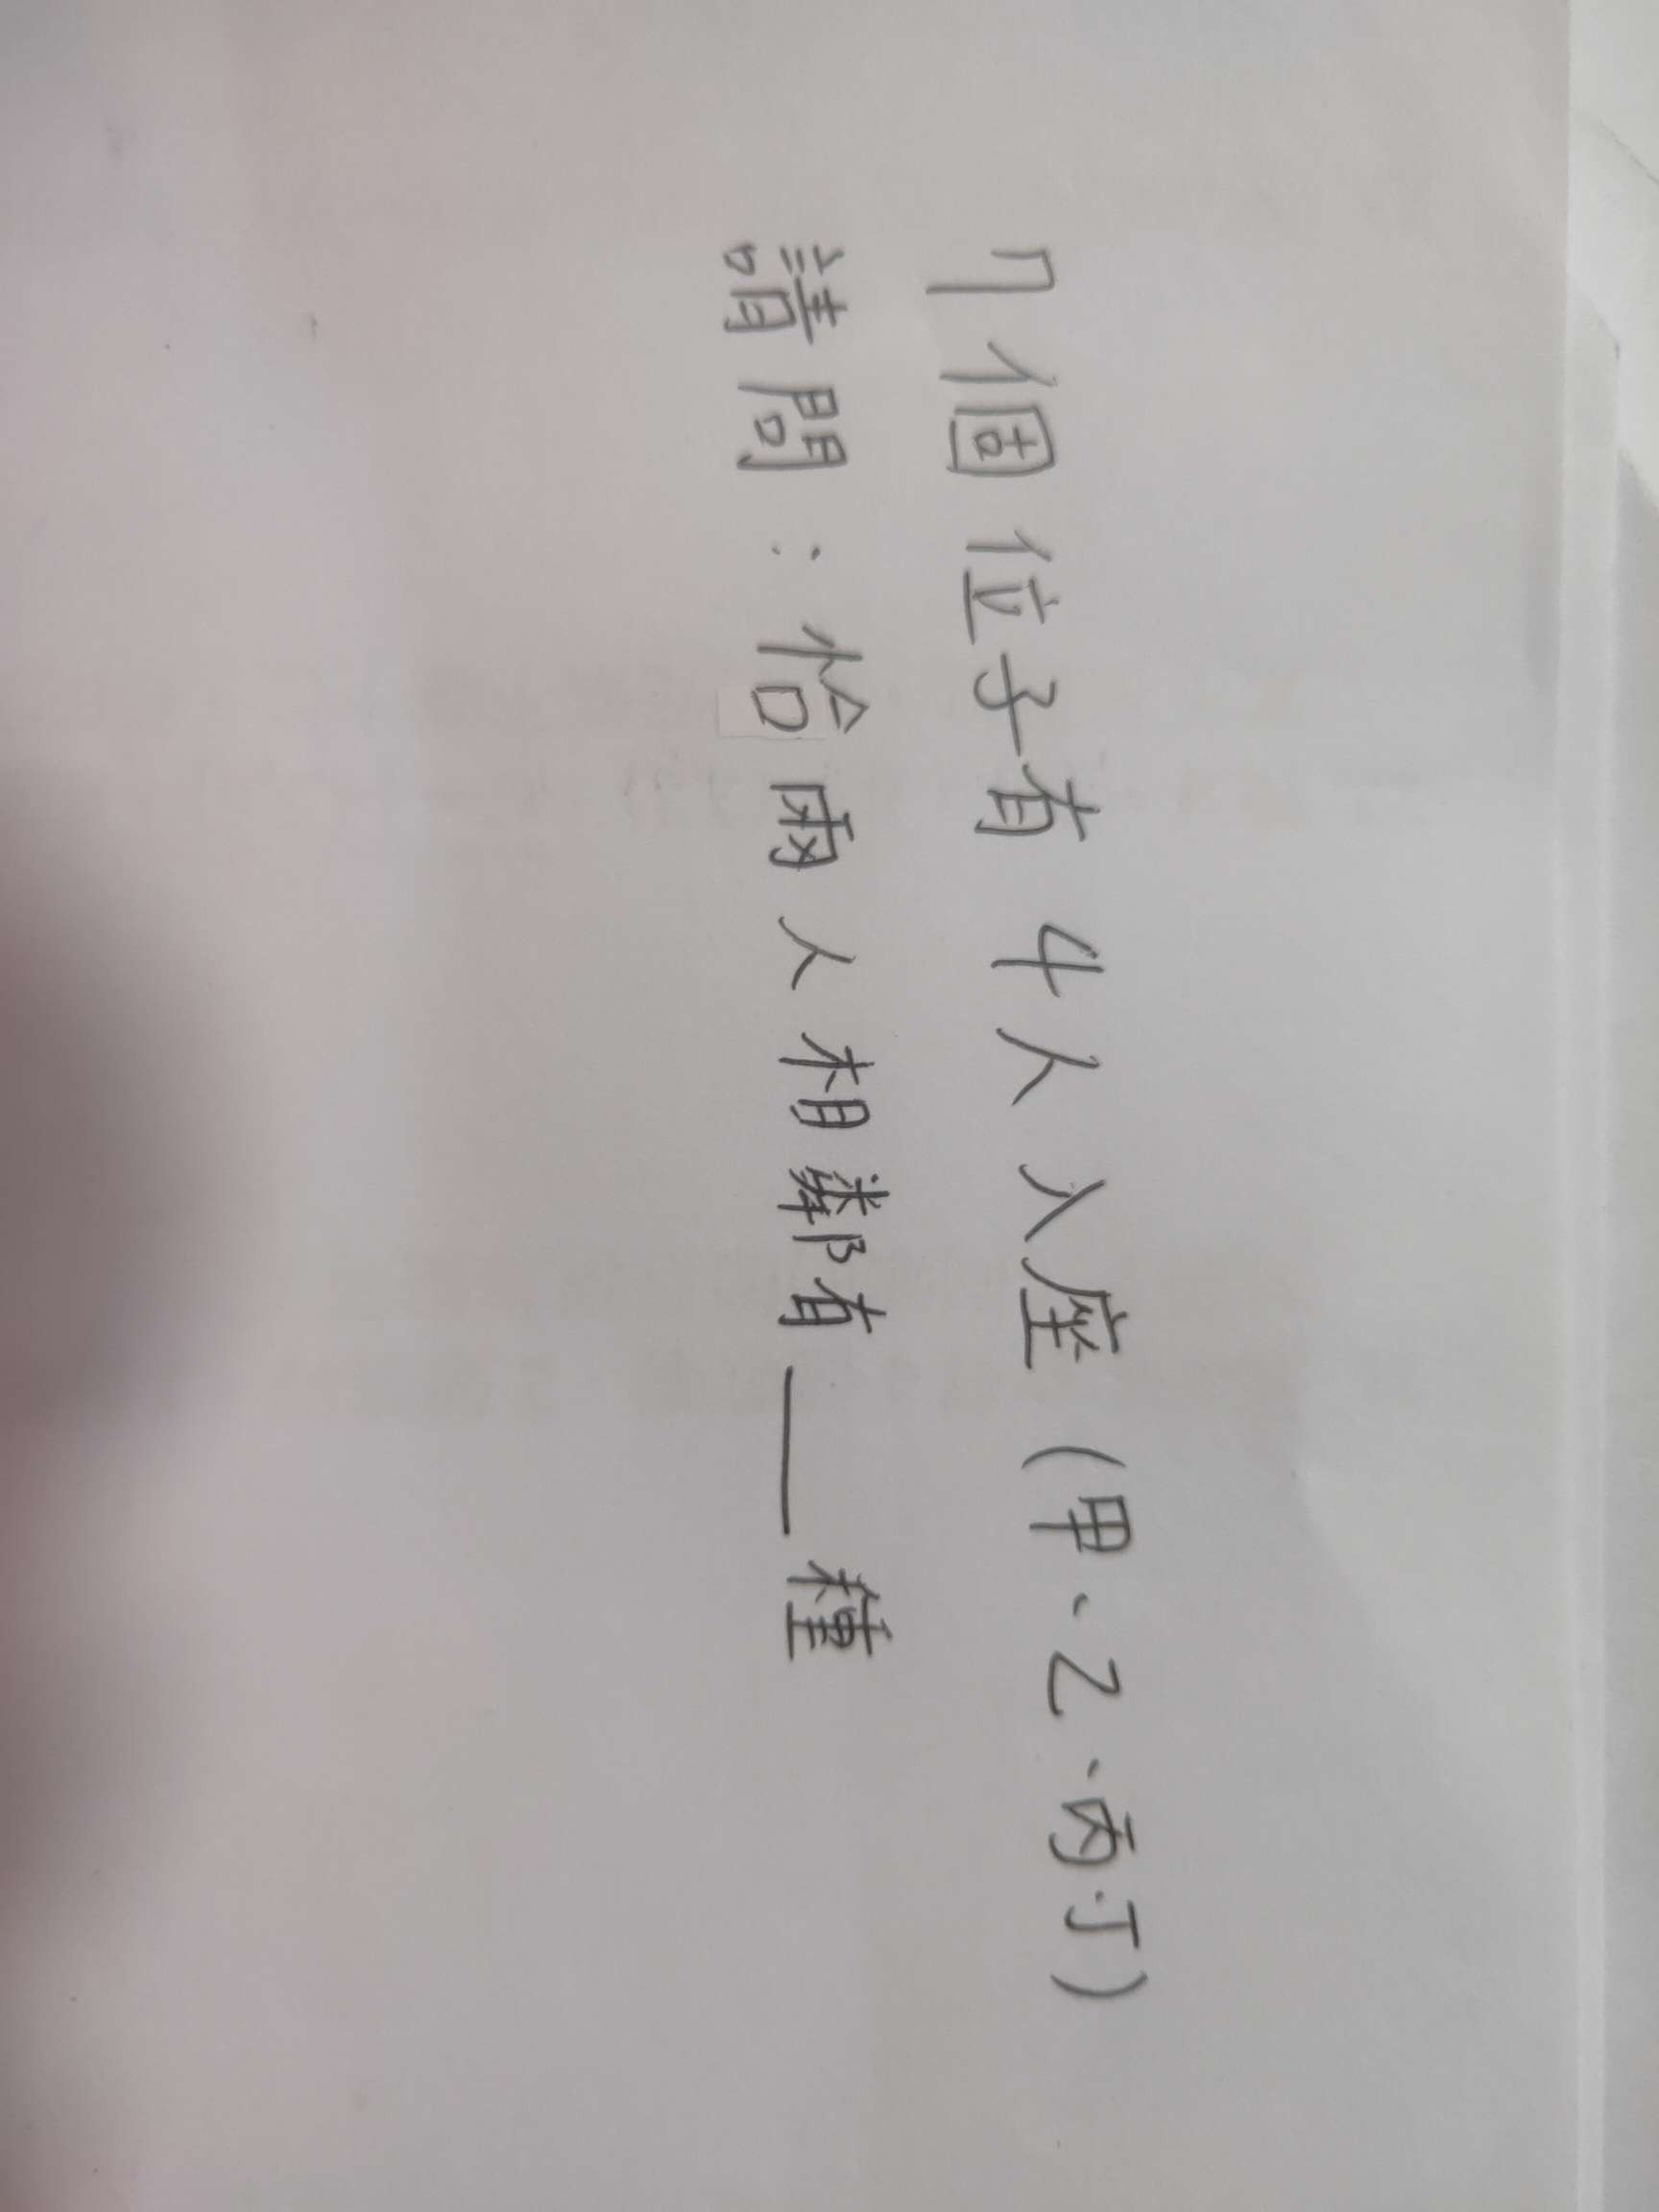 7個位子有4人入座(甲、乙、丙、丁)
請問:恰兩人相鄰有___種